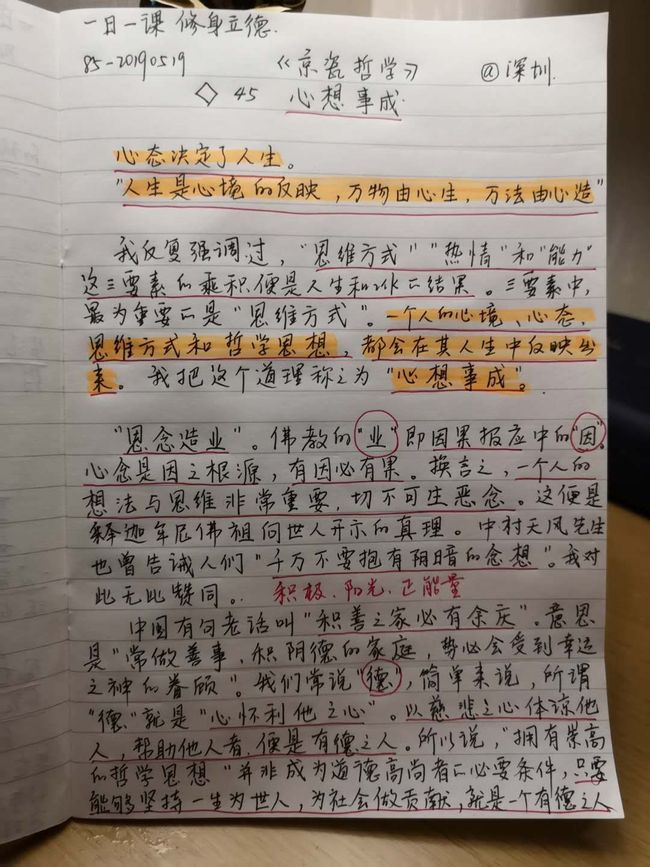 一日一课 修身立德.
85-20190519 《京瓷哲学》 @深圳.
◇ 45 心想事成.
心态决定了人生。
"人生是心境的反映，万物由心生，万法由心造"
我反复强调过，"思维方式" "热情"和"能力"
这三要素的乘积便是人生和工作的结果。三要素中，
最为重要的是"思维方式"。一个人的心境、心态、
思维方式和哲学思想，都会在其人生中反映出
来。我把这个道理称之为"心想事成"。
"思念造业"。佛教的"业"即因果报应中的"因"。
心念是因之根源，有因必有果。换言之，一个人的
想法与思维非常重要，切不可生恶念。这便是
释迦牟尼佛祖向世人开示的真理。中村天风先生
也曾告诫人们"千万不要抱有阴暗的念想"。我对
此无比赞同。. 积极、阳光、正能量
中国有句老话叫"积善之家必有余庆"。意思
是"常做善事、积阴德的家庭，势必会受到幸运
之神的眷顾"。我们常说"德"，简单来说，所谓
"德"就是"心怀利他之心"。以慈悲之心体谅他
人，帮助他人者，便是有德之人。所以说，"拥有崇高
的哲学思想"并非成为道德高尚者的必要条件，只要
能够坚持一生为世人，为社会做贡献，就是一个有德之人